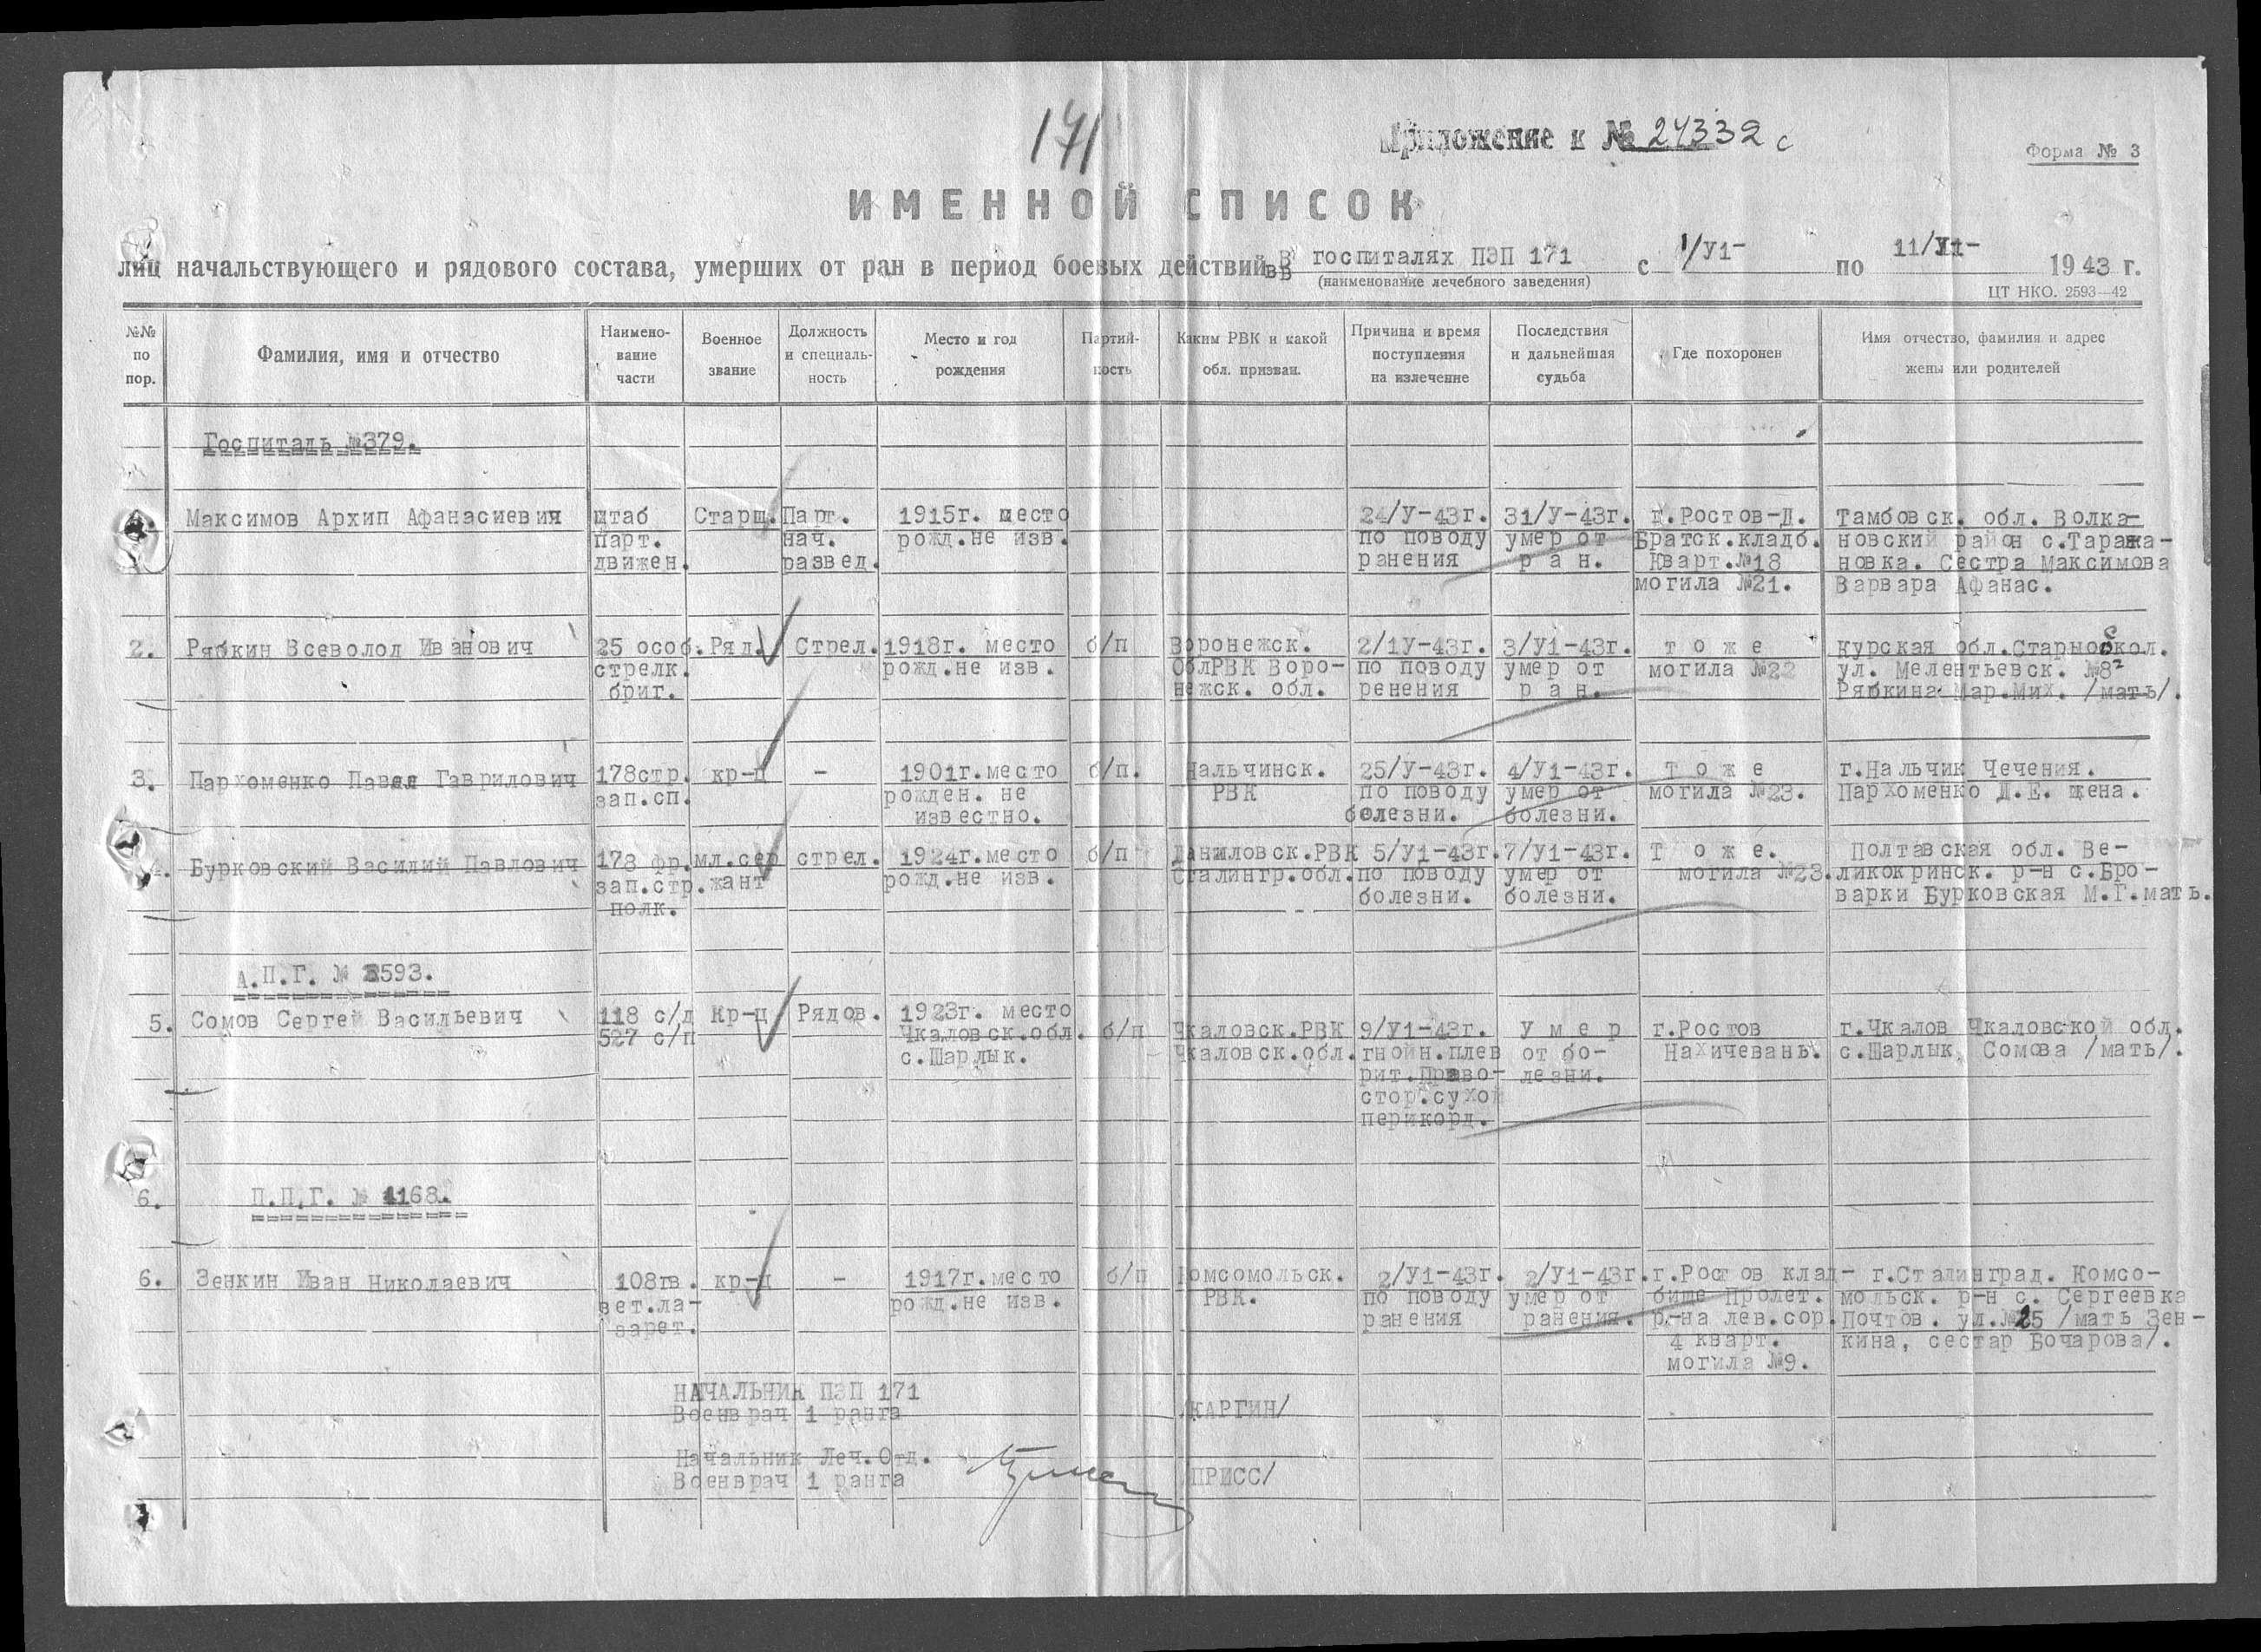 171
Приложение к № 24332 с
Форма № 3
ИМЕННОЙ СПИСОК
лиц начальствующего и рядового состава, умерших от ран в период боевых действий в госпиталях ПЭП 171 с 1/У1- по 11/У1- 1943 г.
(наименование лечебного заведения)
ЦТ НКО. 2593—42
№№ по пор.
Фамилия, имя и отчество
Наимено-
вание
части
Военное
звание
Должность
и специаль-
ность
Место и год
рождения
Партий-
ность
Каким РВК и какой
обл. призван.
Причина и время
поступления
на излечение
Последствия
и дальнейшая
судьба
Где похоронен
Имя отчество, фамилия и адрес
жены или родителей
Госпиталь №379.
Максимов Архип Афанасиевич
штаб
парт.
движен.
Старш.
Парт.
нач.
развед.
1915г. место
рожд.не изв.
24/У-43г.
по поводу
ранения
31/У-43г.
умер от
р а н.
г.Ростов-Д.
Братск.кладб.
Кварт.№18
могила №21.
Тамбовск. обл. Волка-
новский район с.Таража-
новка. Сестра Максимова
Варвара Афанас.
2.
Рябкин Всеволод Иванович
25 особ.
стрелк.
бриг.
Ряд.
Стрел.
1918г. место
рожд.не изв.
б/п
Воронежск.
ОблРВК Воро-
нежск. обл.
2/1У-43г.
по поводу
ренения
3/У1-43г.
умер от
р а н.
т о ж е
могила №22
Курская обл.Старыоскол.
ул. Мелентьевск. №8²
Рябкина Мар.Мих. /мать/.
3.
Пархоменко Павел Гаврилович
178стр.
зап.сп.
кр-ц
-
1901г.место
рожден. не
известно.
б/п.
Нальчинск.
РВК
25/У-43г.
по поводу
болезни.
4/У1-43г.
умер от
болезни.
т о ж е
могила №23.
г.Нальчик Чечения.
Пархоменко Д.Е. жена.
4.
Бурковский Василий Павлович
178 фр.
зап.стр.
полк.
мл.сер
жант
стрел.
1924г.место
рожд.не изв.
б/п
Даниловск.РВК
Сталингр.обл.
5/У1-43г.
по поводу
болезни.
7/У1-43г.
умер от
болезни.
Т о ж е.
могила №23.
Полтавская обл. Ве-
ликокринск. р-н с.Бро-
варки Бурковская М.Г.мать.
А.П.Г. № 2593.
5.
Сомов Сергей Васильевич
118 с/д
527 с/п
Кр-ц
Рядов.
1923г. место
Чкаловск.обл.
с.Шарлык.
б/п
Чкаловск.РВК
Чкаловск.обл.
9/У1-43г.
гнойн.плев
рит.Право-
стор.сухой
перикорд.
У м е р
от бо-
лезни.
г.Ростов
Нахичевань.
г.Чкалов Чкаловской обл.
с.Шарлык, Сомова /мать/.
6.
П.П.Г. № 4168.
6.
Зенкин Иван Николаевич
108гв.
вет.ла-
зарет.
кр-ц
-
1917г.место
рожд.не изв.
б/п
Комсомольск.
РВК.
2/У1-43г.
по поводу
ранения
2/У1-43г.
умер от
ранения.
г.Ростов клад-
бище Пролет.
р-на лев.сор.
4 кварт.
могила №9.
г.Сталинград. Комсо-
мольск. р-н с. Сергеевка
Почтов. ул.№25 /мать Зен-
кина, сестар Бочарова/.
НАЧАЛЬНИК ПЭП 171
Военврач 1 ранга
/КАРГИН/
Начальник Леч.Отд.
Военврач 1 ранга
/ПРИСС/